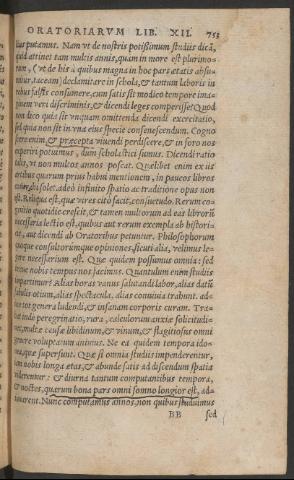 ORATORIARVM LIB. XII. 753
putamus. Nam vt de nostris potissimum studiis dicã,
quid attinet tam multis annis, quam in more est plurimo-
rum, (vt de his à quibus magna in hoc pars ætatis absu-
taceam) declamitare in schola, & tantum laboris in
rebus falsis consumere, cum satis sit modico tempore ima-
ginem veri discriminis, & dicendi leges comperisse? Quod
non dico quia sit vnquam omittenda dicendi exercitatio,
sed quia non sit in vna eius specie consenescendum. Cogno
scere enim, & præcepta viuendi perdiscere, & in foro nos
experiri potuimus, dum scholastici sumus. Dicendi ratio
talis, vt non multos annos poscat. Quælibet enim ex iis
artibus quarum prius habui mentionem, in paucos libros
solet: adeò infinito spatio ac traditione opus non
est. Reliqua est, quæ vires citò facit, consuetudo. Rerum co-
gnitio quotidie crescit, & tamen multorum ad eam librorũ
necessaria lectio est, quibus aut rerum exempla ab histori-
aut dicendi ab Oratoribus petuntur. Philosophorum
quoque consultorúmque opiniones, sicuti alia, velimus le-
gere necessarium est. Quæ quidem possumus omnia: sed
breue nobis tempus nos facimus. Quantulum enim studiis
impertimur? Alias horas vanus salutandi labor, alias datũ
fabulis otium, alias spectacula, alias conuiuia trahunt. ad-
tot genera ludendi, & insanam corporis curam. Tra-
inde peregrinatio, rura, calculorum anxiæ solicitudi-
causæ libidinum, & vinum, & flagitiosus omni
genere voluptatum animus. Ne ea quidem tempora ido-
nea, quæ supersunt. Quæ si omnia studiis impenderentur,
iam nobis longa ætas, & abunde satis ad discendum spatia
viderentur: & diurna tantum computantibus tempora,
& noctes, quarum bona pars omni somno longior est, ad-
iuuarent. Nunc computamus annos, non quibus studuimus
BB sed